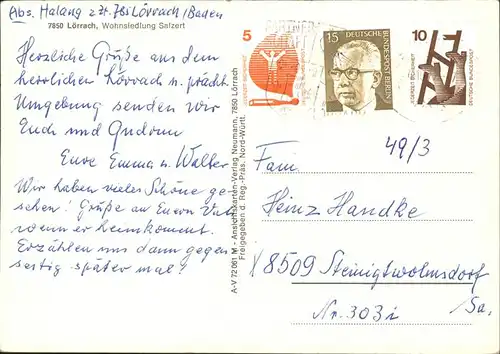 Abs. Halang z Zt. 785 Lörrach/Baden
7850 Lörrach, Wohnsiedlung Salzert
Herzliche Grüße aus dem
herrlichen Lörrach u. pracht.
Umgebung senden wir
Euch und Gudrun
Eure Emma u. Walter
Wir haben vieles Schöne ge-
sehen! Grüße an Euern Vati
wenn er heimkommt.
Erzählen uns dann gegen
seitig später mal!
A-V 72 061 M - Ansichtskarten-Verlag Neumann, 7850 Lörrach
Freigegeben d. Reg.-Präs. Nord-Württ.
5
15
DEUTSCHE
BUNDESPOST BERLIN
10
JEDERZEIT SICHERHEIT
49/3
Fam.
Heinz Handke
8509 Steinigtwolmsdorf
Nr. 303 i
/Sa.